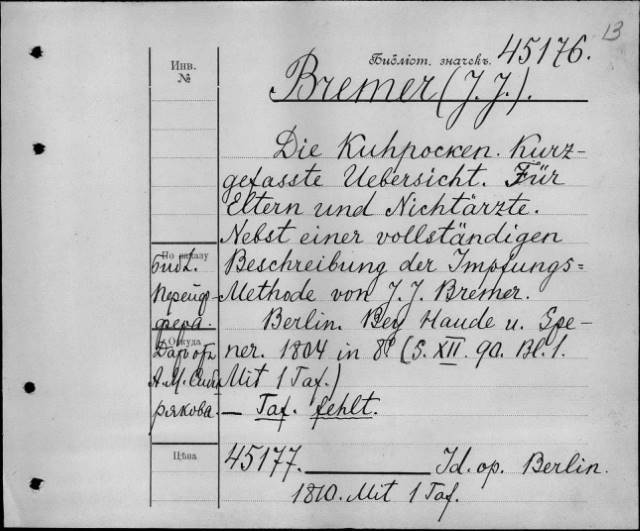 13
Библіот. значекъ. 45176.
Инв.
№
Bremer (J. J.).
Die Kuhpocken. Kurz-
gefasste Uebersicht. Für
Eltern und Nichtärzte.
Nebst einer vollständigen
Beschreibung der Impfungs=
Methode von J. J. Bremer.
Berlin. Bey Haude u. Spe-
ner. 1804 in 8º (S. XII. 90. Bl. 1.
Mit 1 Taf.)
— Taf. fehlt.
По каталу
библ.
Перейд-
Откуда
Даръ отъ
А. М. Сиби
рякова.
Цѣна
45177. ——— Id. op. Berlin.
1810. Mit 1 Taf.